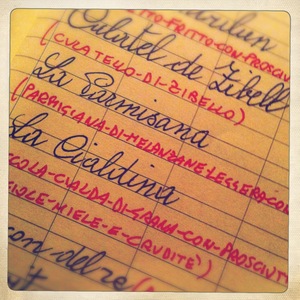 TTO-FRITTO-CON-PROSCIU
Culatel de Zibell
(CULATELLO-DI-ZIBELLO)
La Parmisana
(PARMIGIANA-DI-MELANZANE-LEGGERA-CO
La Cialdina
COLA-CIALDA-DI-GRANA-CON-PROSCIUTT
CIOLE-MIELE-E-CRUDITE')